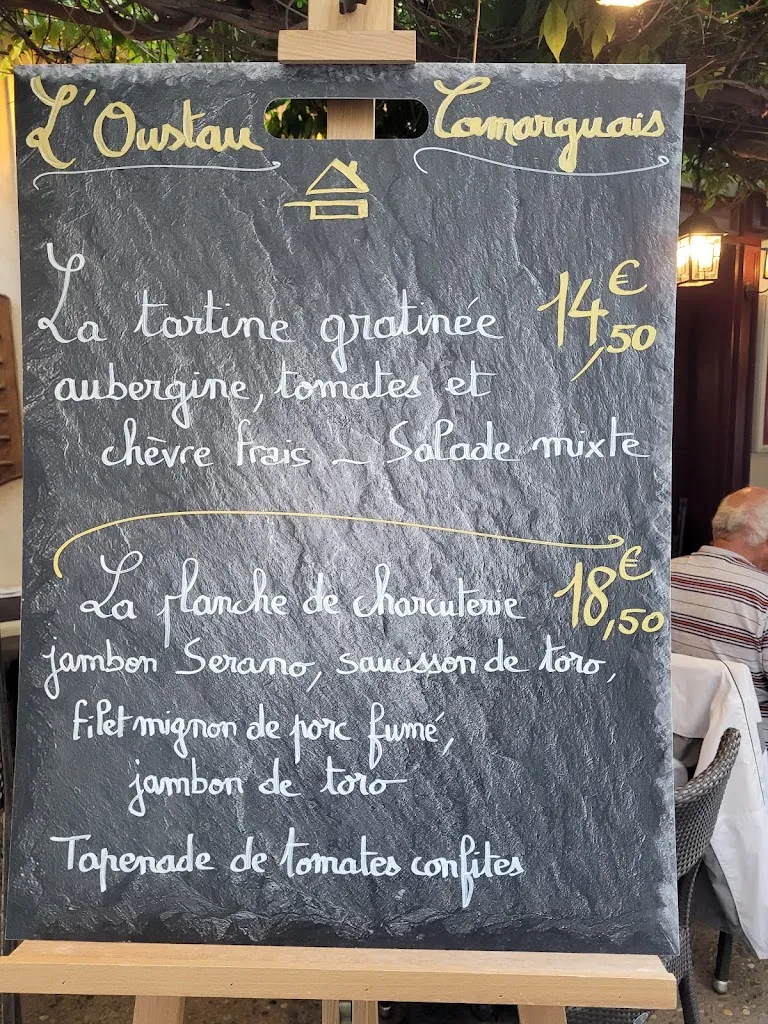 L'Oustau Camarguais
La tartine gratinée 14,50€
aubergine, tomates et
chèvre frais - Salade mixte
La planche de charcuterie 18,50€
jambon Serano, saucisson de toro,
filet mignon de porc fumé,
jambon de toro
Tapenade de tomates confites